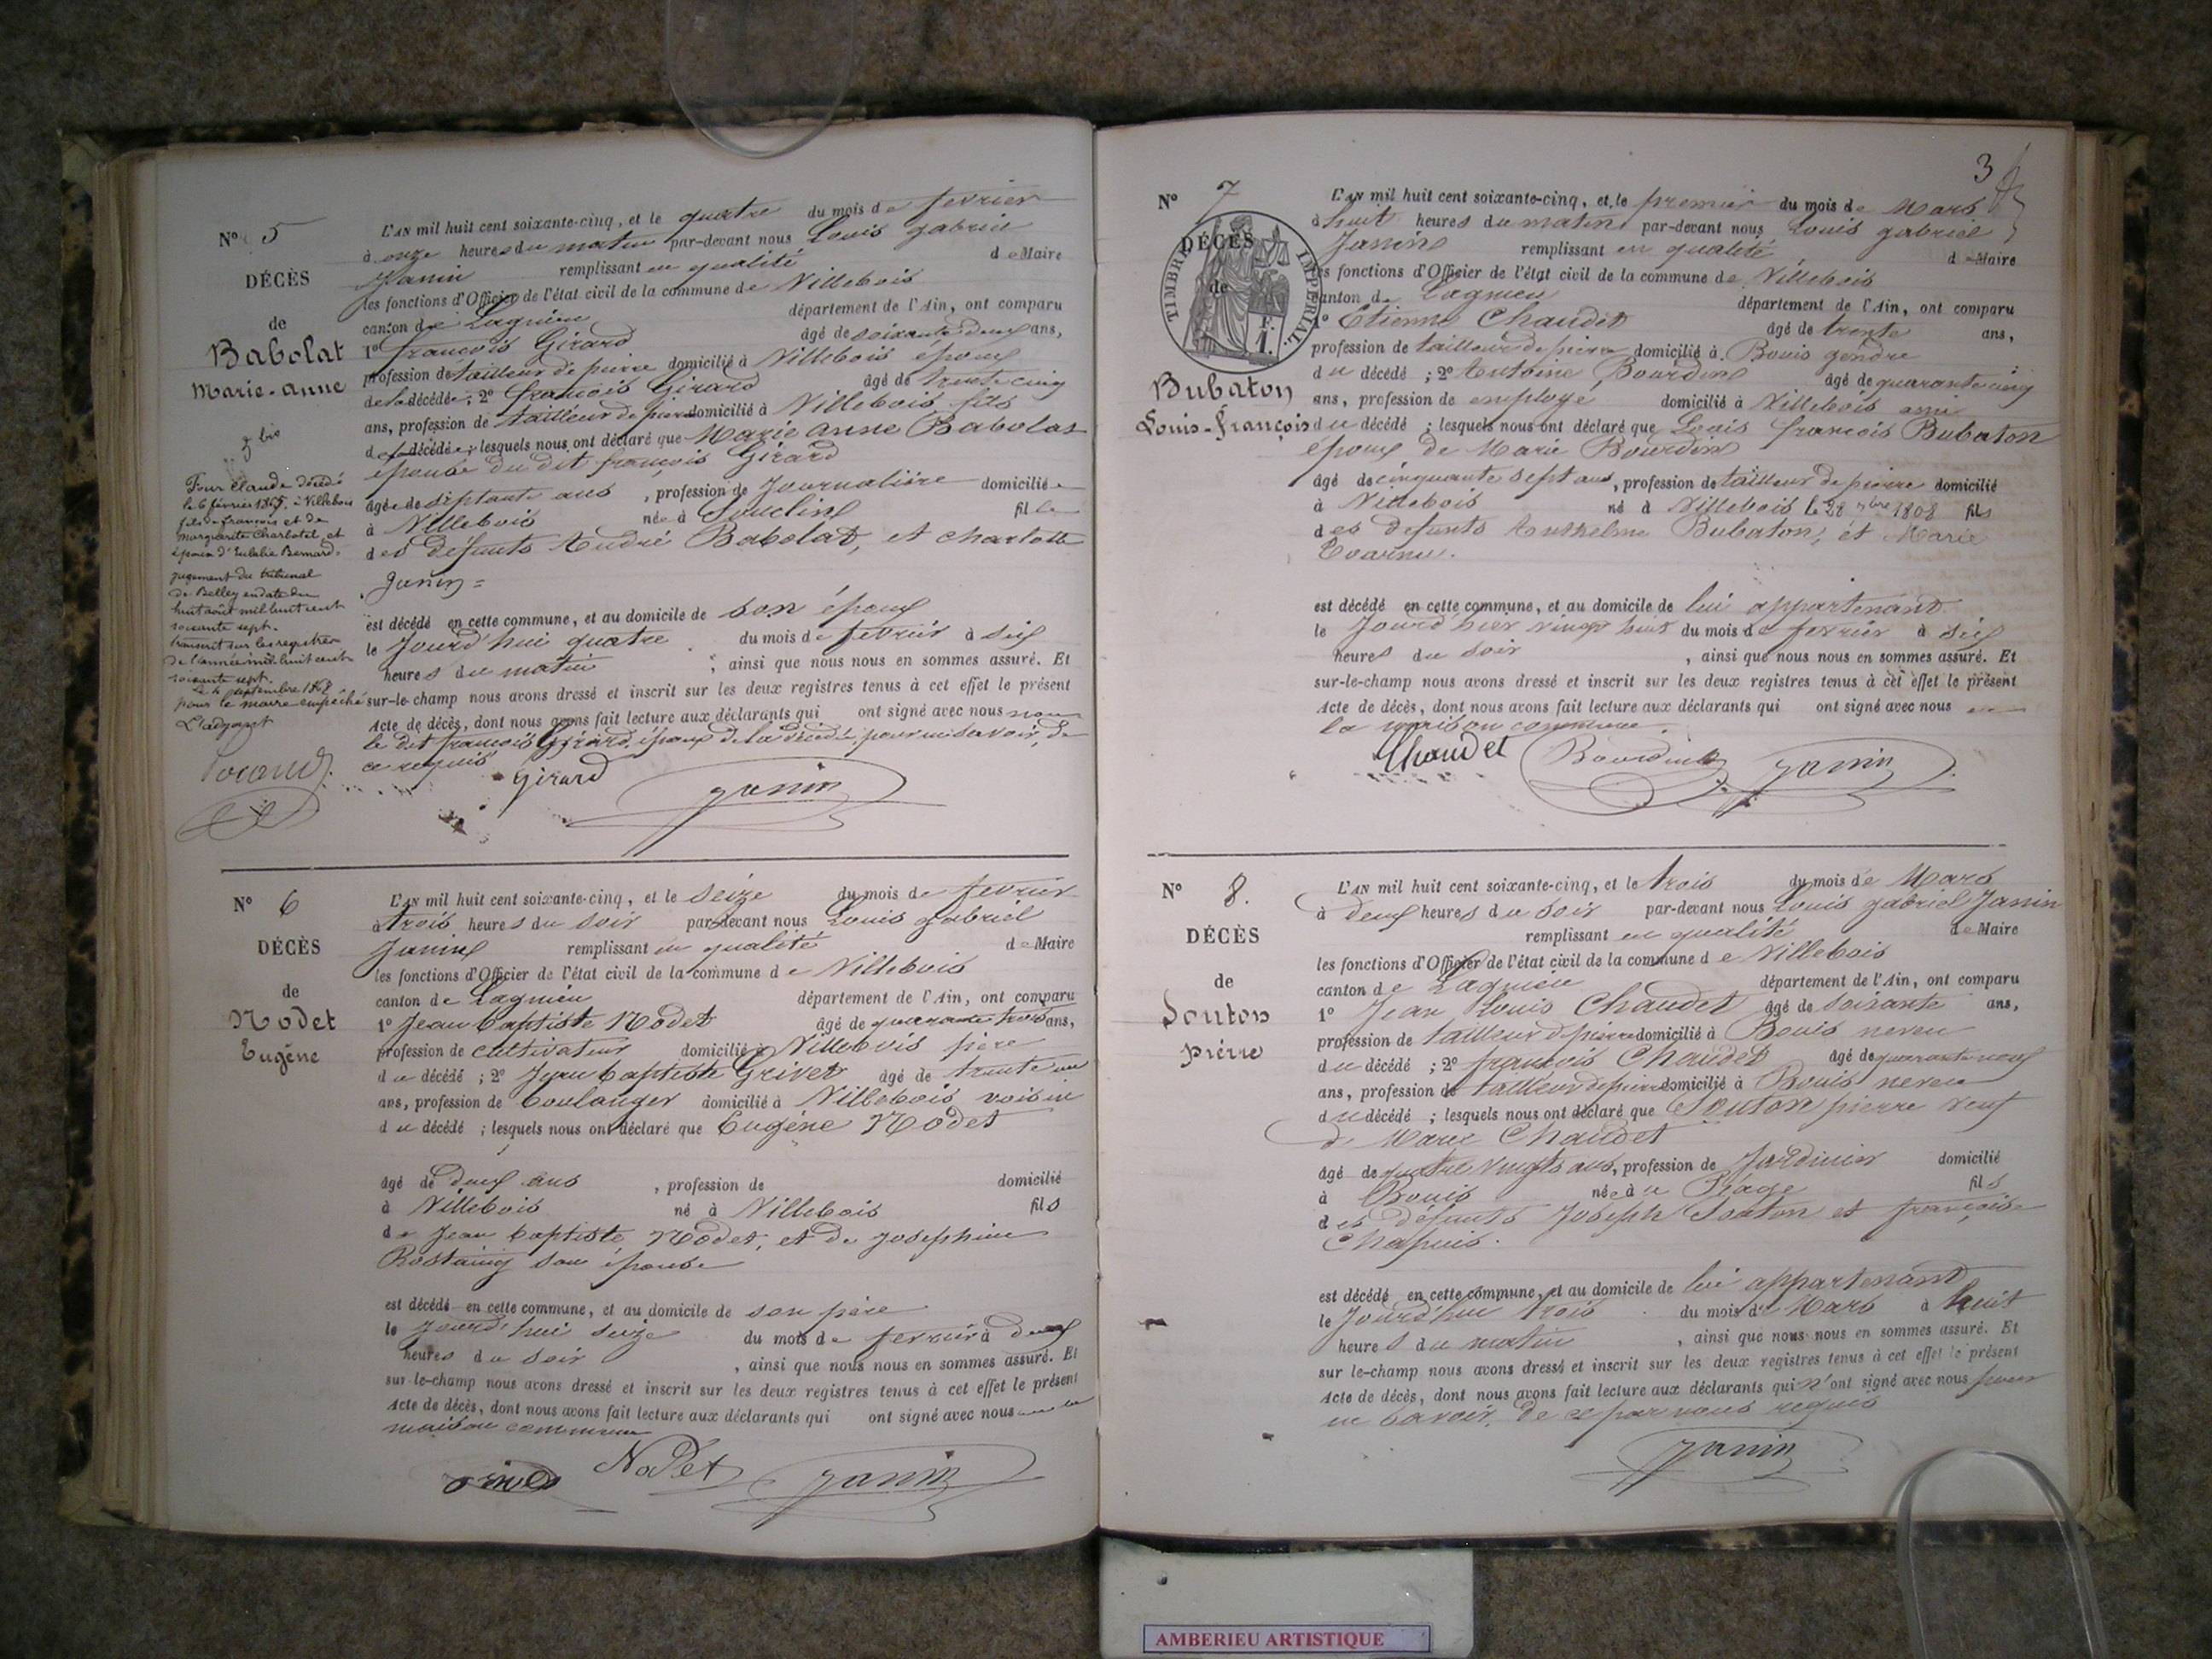 Nº 5
DÉCÈS
de
Babolat
Marie-Anne
5 bis
Four Claude décédé
le 6 février 1865, à Villebois
fils de françois et de
Marguerite Charlotel, et
époux d'Eulalie Bernard.
jugement du tribunal
de Belley en date du
huit août mil huit cent
soixante sept.
transcrit sur les registres
de l'année mil huit cent
soixante sept.
Le 4 septembre 1868
pour le maire empêché
L'adjoint
L'AN mil huit cent soixante-cinq, et le quatre du mois de fevrier
à onze heures du matin par-devant nous Louis gabriel
Janin remplissant en qualité de Maire
les fonctions d'Officier de l'état civil de la commune de Villebois
canton de Lagnieu département de l'Ain, ont comparu
1º françois Girard âgé de soixante deux ans,
profession de tailleur de pierre domicilié à Villebois époux
de la décédée; 2º françois Girard âgé de trente cinq
ans, profession de tailleur de pierre domicilié à Villebois fils
de la décédée; lesquels nous ont déclaré que Marie Anne Babolat
épouse du dit françois Girard
âgée de septante ans, profession de Journalière domiciliée
à Villebois née à Souclin fille
des défunts André Babolat, et charlotte
Janin =
est décédé en cette commune, et au domicile de son époux
le Jourd'hui quatre du mois de fevrier à six
heures du matin ; ainsi que nous nous en sommes assuré. Et
sur-le-champ nous avons dressé et inscrit sur les deux registres tenus à cet effet le présent
Acte de décès, dont nous avons fait lecture aux déclarants qui ont signé avec nous non
le dit françois Girard, époux de la décédée pour ne savoir, de
ce requis
Girard Janin
Nº 6
DÉCÈS
de
Nodet
Eugène
L'AN mil huit cent soixante-cinq, et le seize du mois de fevrier
à trois heures du soir par-devant nous Louis gabriel
Janin remplissant en qualité de Maire
les fonctions d'Officier de l'état civil de la commune de Villebois
canton de Lagnieu département de l'Ain, ont comparu
1º Jean baptiste Nodet âgé de quarante trois ans,
profession de cultivateur domicilié à Villebois père
du décédé ; 2º Jean baptiste Grivet âgé de trente un
ans, profession de boulanger domicilié à Villebois voisin
du décédé ; lesquels nous ont déclaré que Eugène Nodet
âgé de deux ans , profession de domicilié
à Villebois né à Villebois fils
de Jean baptiste Nodet, et de Josephine
Rostaing son épouse
est décédé en cette commune, et au domicile de son père
le Jourd'hui seize du mois de fevrier à deux
heures du soir , ainsi que nous nous en sommes assuré. Et
sur-le-champ nous avons dressé et inscrit sur les deux registres tenus à cet effet le présent
Acte de décès, dont nous avons fait lecture aux déclarants qui ont signé avec nous en la
maison commune
Nodet Janin
3
Nº 7
TIMBRE IMPÉRIAL
1 F.
DÉCÈS
de
Bubaton
Louis-François
L'AN mil huit cent soixante-cinq, et le premier du mois de Mars
à huit heures du matin par-devant nous Louis gabriel
Janin remplissant en qualité de Maire
les fonctions d'Officier de l'état civil de la commune de Villebois
canton de Lagnieu département de l'Ain, ont comparu
1º Etienne Chaudet âgé de trente ans,
profession de tailleur de pierre domicilié à Bouis gendre
du décédé ; 2º Antoine Bourdin âgé de quarante cinq
ans, profession de employé domicilié à Villebois ami
du décédé ; lesquels nous ont déclaré que Louis françois Bubaton
époux de Marie Bourdin
âgé de cinquante sept ans, profession de tailleur de pierre domicilié
à Villebois né à Villebois le 28 1808 fils
des defunts Anthelme Bubaton, et Marie
est décédé en cette commune, et au domicile de lui appartenant
le Jourd'hier vingt huit du mois de fevrier à six
heures du soir , ainsi que nous nous en sommes assuré. Et
sur-le-champ nous avons dressé et inscrit sur les deux registres tenus à cet effet le présent
Acte de décès, dont nous avons fait lecture aux déclarants qui ont signé avec nous en
la maison commune.
Chaudet Bourdin Janin
Nº 8.
DÉCÈS
de
Souton
pierre
L'AN mil huit cent soixante-cinq, et le trois du mois de Mars
à deux heures du soir par-devant nous Louis gabriel Janin
remplissant en qualité de Maire
les fonctions d'Officier de l'état civil de la commune de Villebois
canton de Lagnieu département de l'Ain, ont comparu
1º Jean Louis Chaudet âgé de soixante ans,
profession de tailleur de pierre domicilié à Bouis neveu
du décédé ; 2º françois Chaudet âgé de quarante neuf
ans, profession de tailleur de pierre domicilié à Bouis neveu
du décédé ; lesquels nous ont déclaré que Souton pierre veuf
de Marie Chaudet
âgé de quatre vingts ans, profession de Jardinier domicilié
à Bouis né à fils
des défunts Joseph Souton et françoise
Chapuis.
est décédé en cette commune, et au domicile de lui appartenant
le Jourd'hui trois du mois de Mars à huit
heures du matin , ainsi que nous nous en sommes assuré. Et
sur le-champ nous avons dressé et inscrit sur les deux registres tenus à cet effet le présent
Acte de décès, dont nous avons fait lecture aux déclarants qui n'ont signé avec nous pour
ne savoir, de ce par nous requis
Janin
AMBERIEU ARTISTIQUE